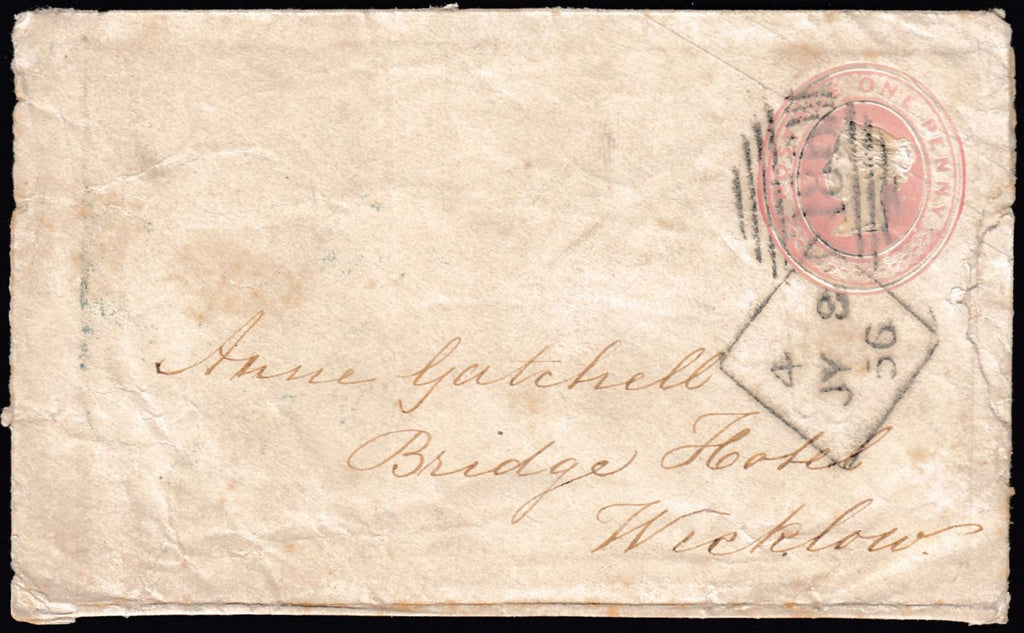 ONE PENNY
4
JY 8
56
Anne Gatchell
Bridge Hotel
Wicklow